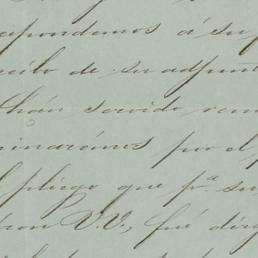 spondemos á su p
ecibo de su adjunt
han servido rem
minarémos por el p
l pliego que p.ª su
ron V.V., fué diri